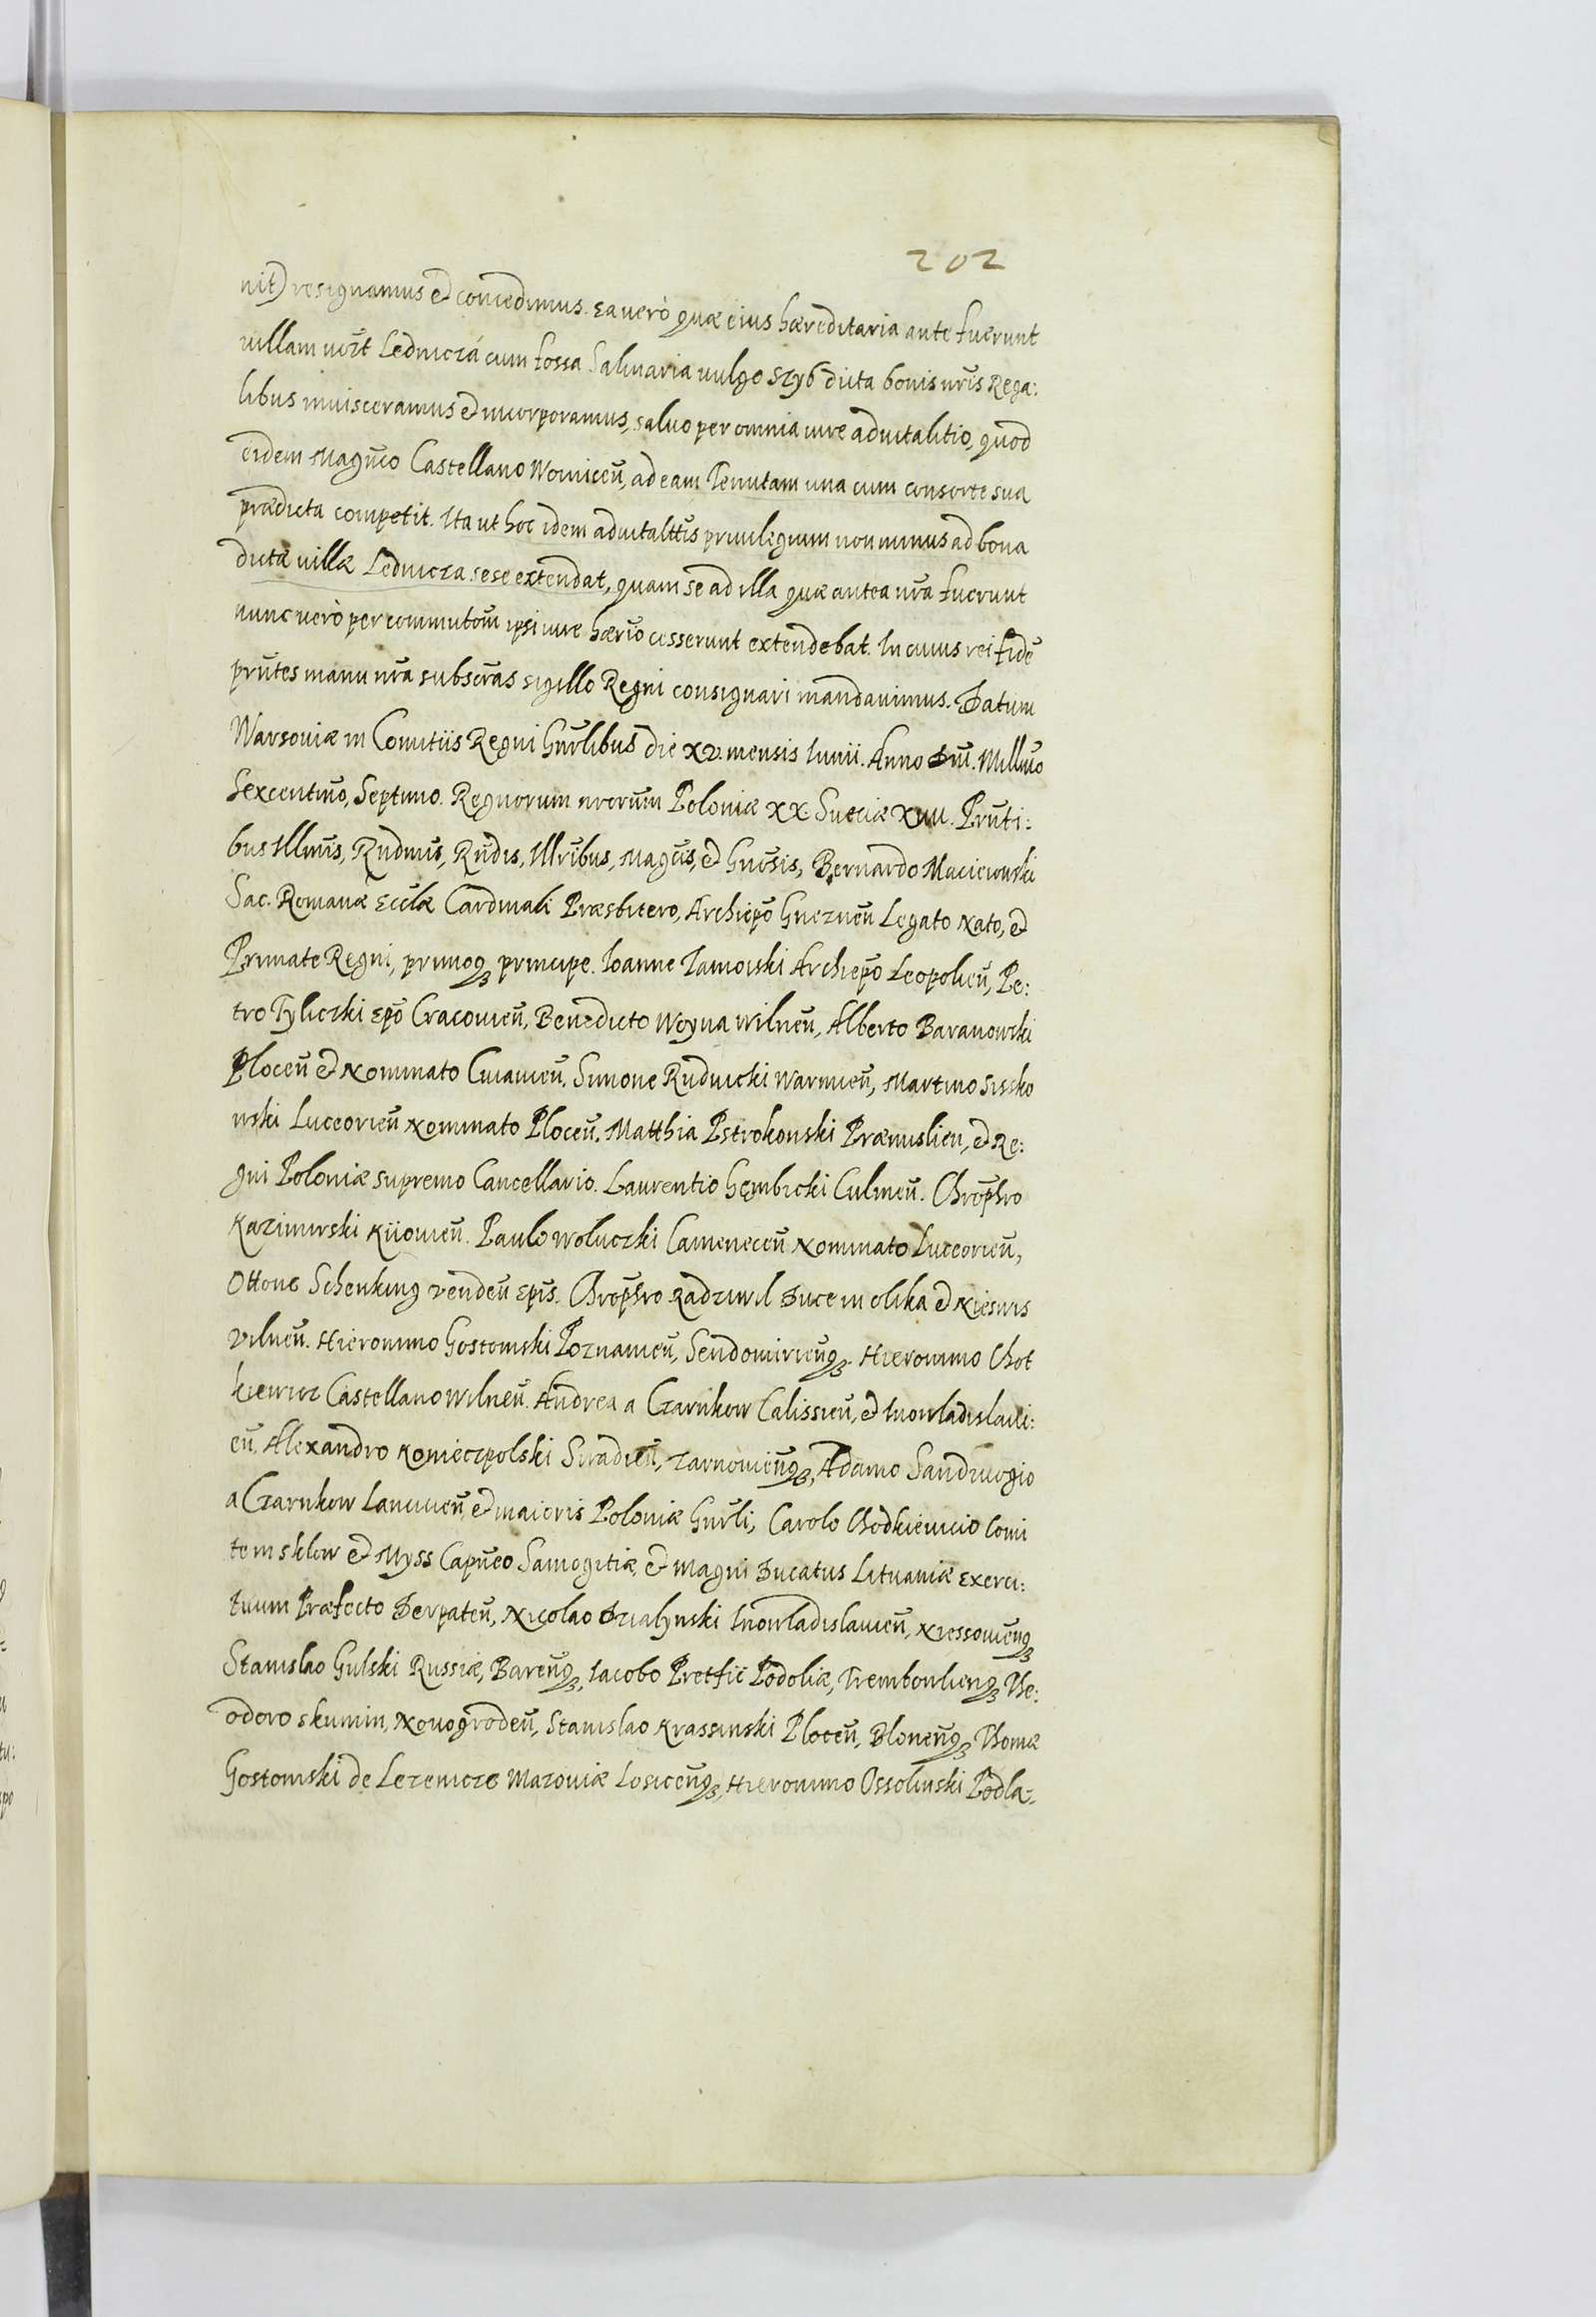 202
nit) resignamus et concedimus. Ea verò quæ eius hæreditaria ante fuerunt
villam nŏīt Lednicza cum fossa Salinaria vulgo Szyb dicta bonis nr̃is Rega:
libus inuisceramus et incorporamus, saluo per omnia iure aduitalitio, quod
eidem Magn̄co Castellano Woinicen̄, ad eam Tenutam una cum consorte sua
prædicta competit. Ita ut hoc idem aduitalttis priuilegium non minus ad bona
dictæ villæ Lednicza sese extendat, quam se ad illa quæ antea nr̃a fuerunt
nunc verò per commutōm ipsi iure hæri̅o cesserunt extendebat. In cuius rei fidē
prn̄tes manu nr̃a subscr̃as sigillo Regni consignari mandauimus. Datum
Warsoviæ in Comitiis Regni Gnr̄libus die XV. mensis Iunii. Anno Dn̄i. Millmō
Sexcentmō, Septimo. Regnorum nrorum Poloniæ XX. Sueciæ XIIII. Prn̄ti:
bus Illmīs, Rn̄dmis, Rn̄dis, Illr̄ibus, Magcīs, et Gnōsis, Bernardo Macieiowski
Sac. Romanæ Eccl̄æ Cardinali Præsbitero, Archiep̄o Gneznen̄ Legato Nato, et
Primate Regni, primoq3 principe. Ioanne Zamoiski Archiep̄o Leopolien̄, Pe:
tro Tyliczki Ep̄o Cracouien̄, Benedicto Woyna Wilnen̄, Alberto Baranowski
Plocen̄ et Nominato Cuiauien̄. Simone Rudnicki Warmien̄, Martino Sissko
wski Luceorien̄ Nominato Plocen̄. Matthia Pstrokonski Præmislien, et Re:
gni Poloniæ supremo Cancellario. Laurentio Gęmbicki Culmen̄. Chrōphro
Kazimirski Kiiouien̄. Paulo Woluczki Camenecen̄ Nominato Luceorien̄,
Ottone Schenking Venden̄ Ep̄is. Chrōphro Radziwil Duce in Olika et Niesuis
Vilnen̄. Hieronimo Gostomski Poznanien̄, Sendomirien̄q3. Hieronimo Chot
kiewicz Castellano Wilnen̄. Andrea a Czarnkow Calissien̄, et Inowladislaui:
en̄. Alexandro Koniecpolski Siradien̄, Zarnouien̄q3, Adamo Sandiuogio
a Czarnkow Lancicien̄ et maioris Poloniæ Gnr̄li, Carolo Chodkieuicio Comi
te in Sklow et Myss Capn̄eo Samogitiæ et Magni Ducatus Lituaniæ Exerci:
tuum Præfecto Derpaten̄, Nicolao Dzialynski Inowladislauien̄, Niessouien̄q3
Stanislao Gulski Russiæ, Baren̄q3, Iacobo Pretfic Podoliæ, Trembowlien̄q3 The:
odoro Skumin, Nouogroden̄, Stanislao Krassinski Plocen̄, Blonen̄q3 Thoma
Gostomski de Lezenicze Mazouiæ Losicen̄q3, Hieronimo Ossolinski Podla-